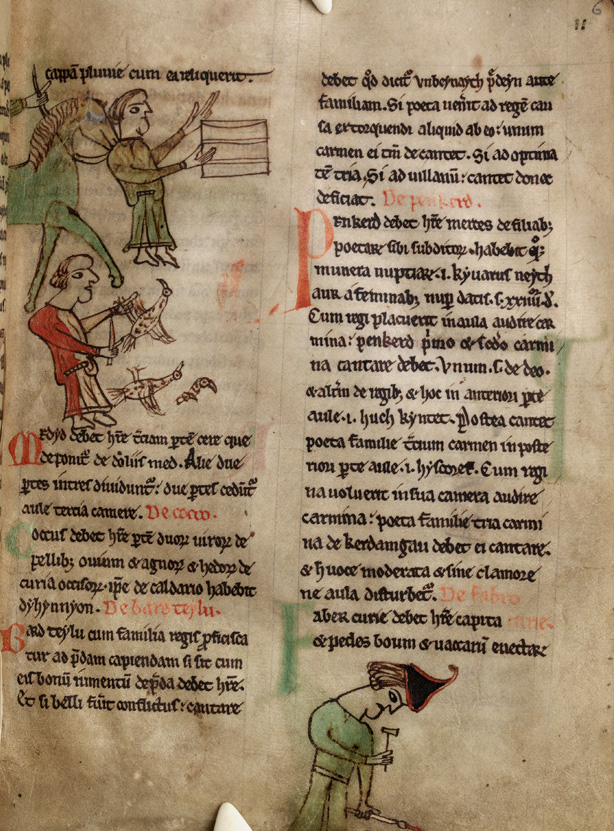 cappā pluuie cum ea reliquerit.
Medyd debet hr̄e t̄ciam ptē cere que
deponit̄ de dōliis med. Alie due
ptes intres diuidunt̄: due ptes cedūt̄
aule tercia camere. De coco.
Cocus debet hr̄e ptē duoꝝ uiroꝝ de
pellib; ouium & agnoꝝ & hedoꝝ de
curia occisoꝝ. ip̄e de caldario habebit
dyhynnyon. De bard teylu.
Bard teylu cum familia regis p̱ficisca
tur ad p̄dam capiendam si sit cum
eis bonū iumentū de p̄da debet hr̄e.
Et si belli fūit conflictus: cantare
debet qd̄ dicit̄ vnbeynaych p̄deyn ante
familiam. Si poeta uen̄it ad regē cau
sa extorquendi aliquid ab eo: unum
carmen ei tm̄ decantet. Si ad optima
tē tria. Si ad uillanū: cantet donec
deficiat. De penkerd.
Penkerd debet hr̄e mercēs de filiab;
poetaꝝ sibi subditoꝝ. habebit qq;
munera nuptiaꝝ .i. kyuarus neyth
aur a feminab; nup̱ datis .s. xxiiii. d'.
Cum regi placuerit in aula audire car
mina: penkerd p̄mo & sc̄do carmi
na cantare debet. Vnum .s. de deo.
& alt̄m de regib; & hoc in anteriori ꝑte
aule .i. huch kyntet. Postea cantet
poeta familie t̄cium carmen in poste
riori ꝑte aule .i. hyscoref. Cum regi
na uoluerit in sua camera audire
carmina: poeta familie tria carmi
na de kerdamgau debet ei cantare.
& huoce moderata & sine clamore
ne aula disturbet̄. De fabro
Faber curie debet hr̄e capita curie.
& pedes boum & uaccarū euectaꝝ